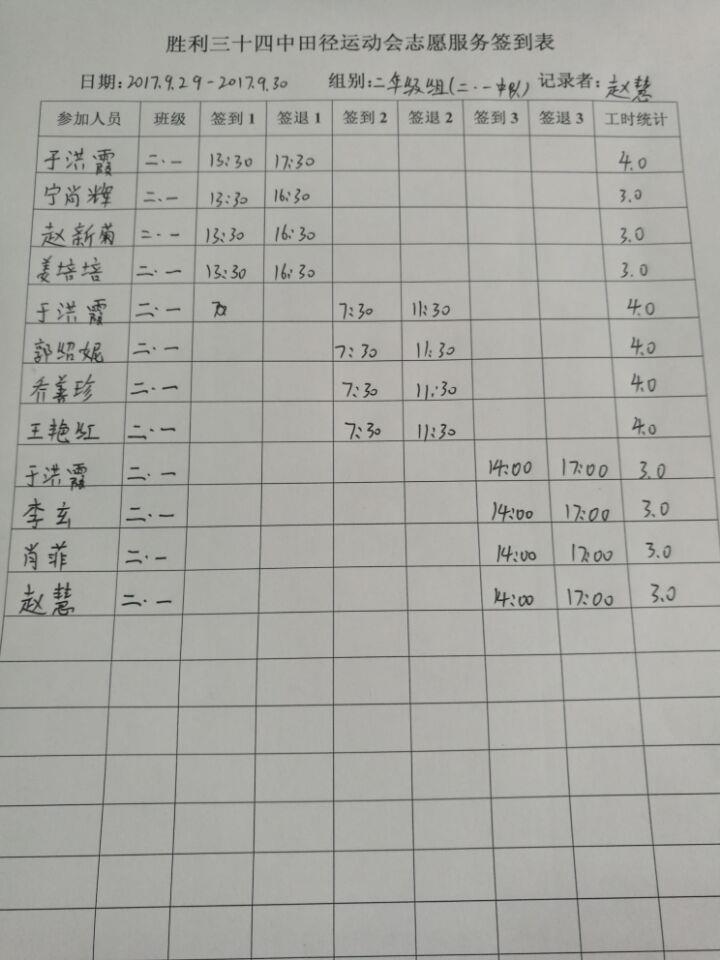 胜利三十四中田径运动会志愿服务签到表
日期:2017.9.29-2017.9.30 组别:二年级组(二.一中队) 记录者:赵慧
参加人员 班级 签到1 签退1 签到2 签退2 签到3 签退3 工时统计
于洪霞 二.一 13:30 17:30 4.0
宁尚辉 二.一 13:30 16:30 3.0
赵新菊 二.一 13:30 16:30 3.0
姜培培 二.一 13:30 16:30 3.0
于洪霞 二.一 7:30 11:30 4.0
郭绍妮 二.一 7:30 11:30 4.0
乔善珍 二.一 7:30 11:30 4.0
王艳红 二.一 7:30 11:30 4.0
于洪霞 二.一 14:00 17:00 3.0
李玄 二.一 14:00 17:00 3.0
肖菲 二.一 14:00 17:00 3.0
赵慧 二.一 14:00 17:00 3.0